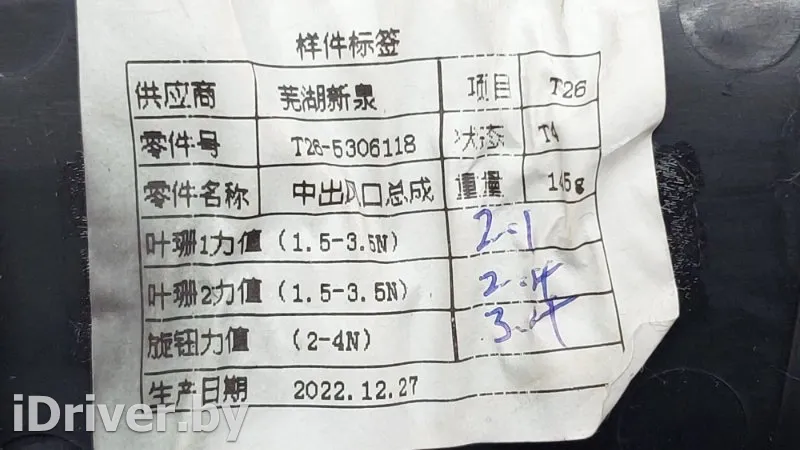 样件标签
供应商 芜湖新泉 项目 T26
零件号 T26-5306118 状态 T4
零件名称 中出风口总成 重量 145g
叶珊1力值 (1.5-3.5N) 2.1
叶珊2力值 (1.5-3.5N) 2.4
旋钮力值 (2-4N) 3.4
生产日期 2022.12.27
iDriver.by